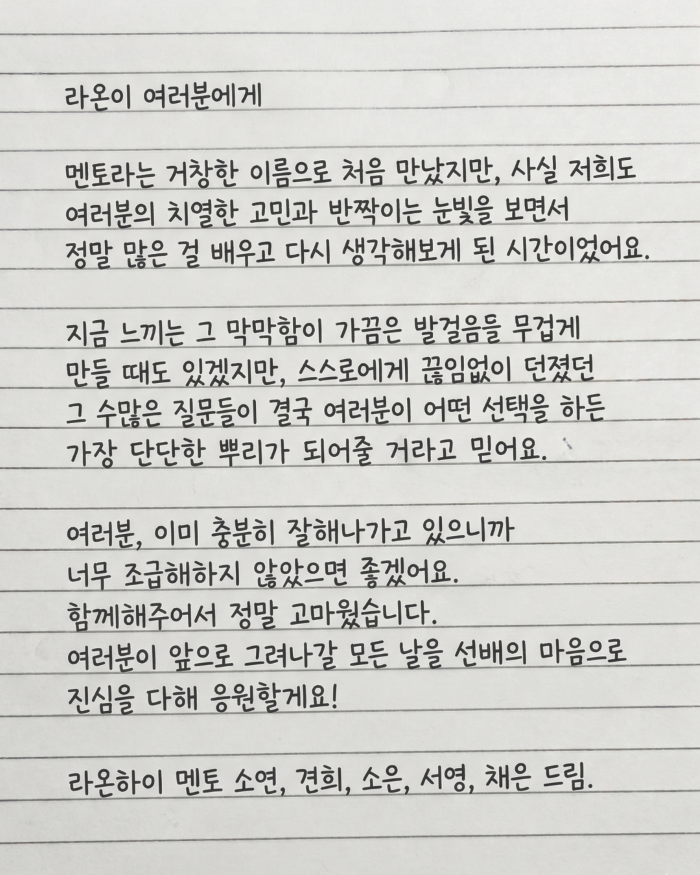 라온이 여러분에게
멘토라는 거창한 이름으로 처음 만났지만, 사실 저희도
여러분의 치열한 고민과 반짝이는 눈빛을 보면서
정말 많은 걸 배우고 다시 생각해보게 된 시간이었어요.
지금 느끼는 그 막막함이 가끔은 발걸음들 무겁게
만들 때도 있겠지만, 스스로에게 끊임없이 던졌던
그 수많은 질문들이 결국 여러분이 어떤 선택을 하든
가장 단단한 뿌리가 되어줄 거라고 믿어요.
여러분, 이미 충분히 잘해나가고 있으니까
너무 조급해하지 않았으면 좋겠어요.
함께해주어서 정말 고마웠습니다.
여러분이 앞으로 그려나갈 모든 날을 선배의 마음으로
진심을 다해 응원할게요!
라온하이 멘토 소연, 견희, 소은, 서영, 채은 드림.